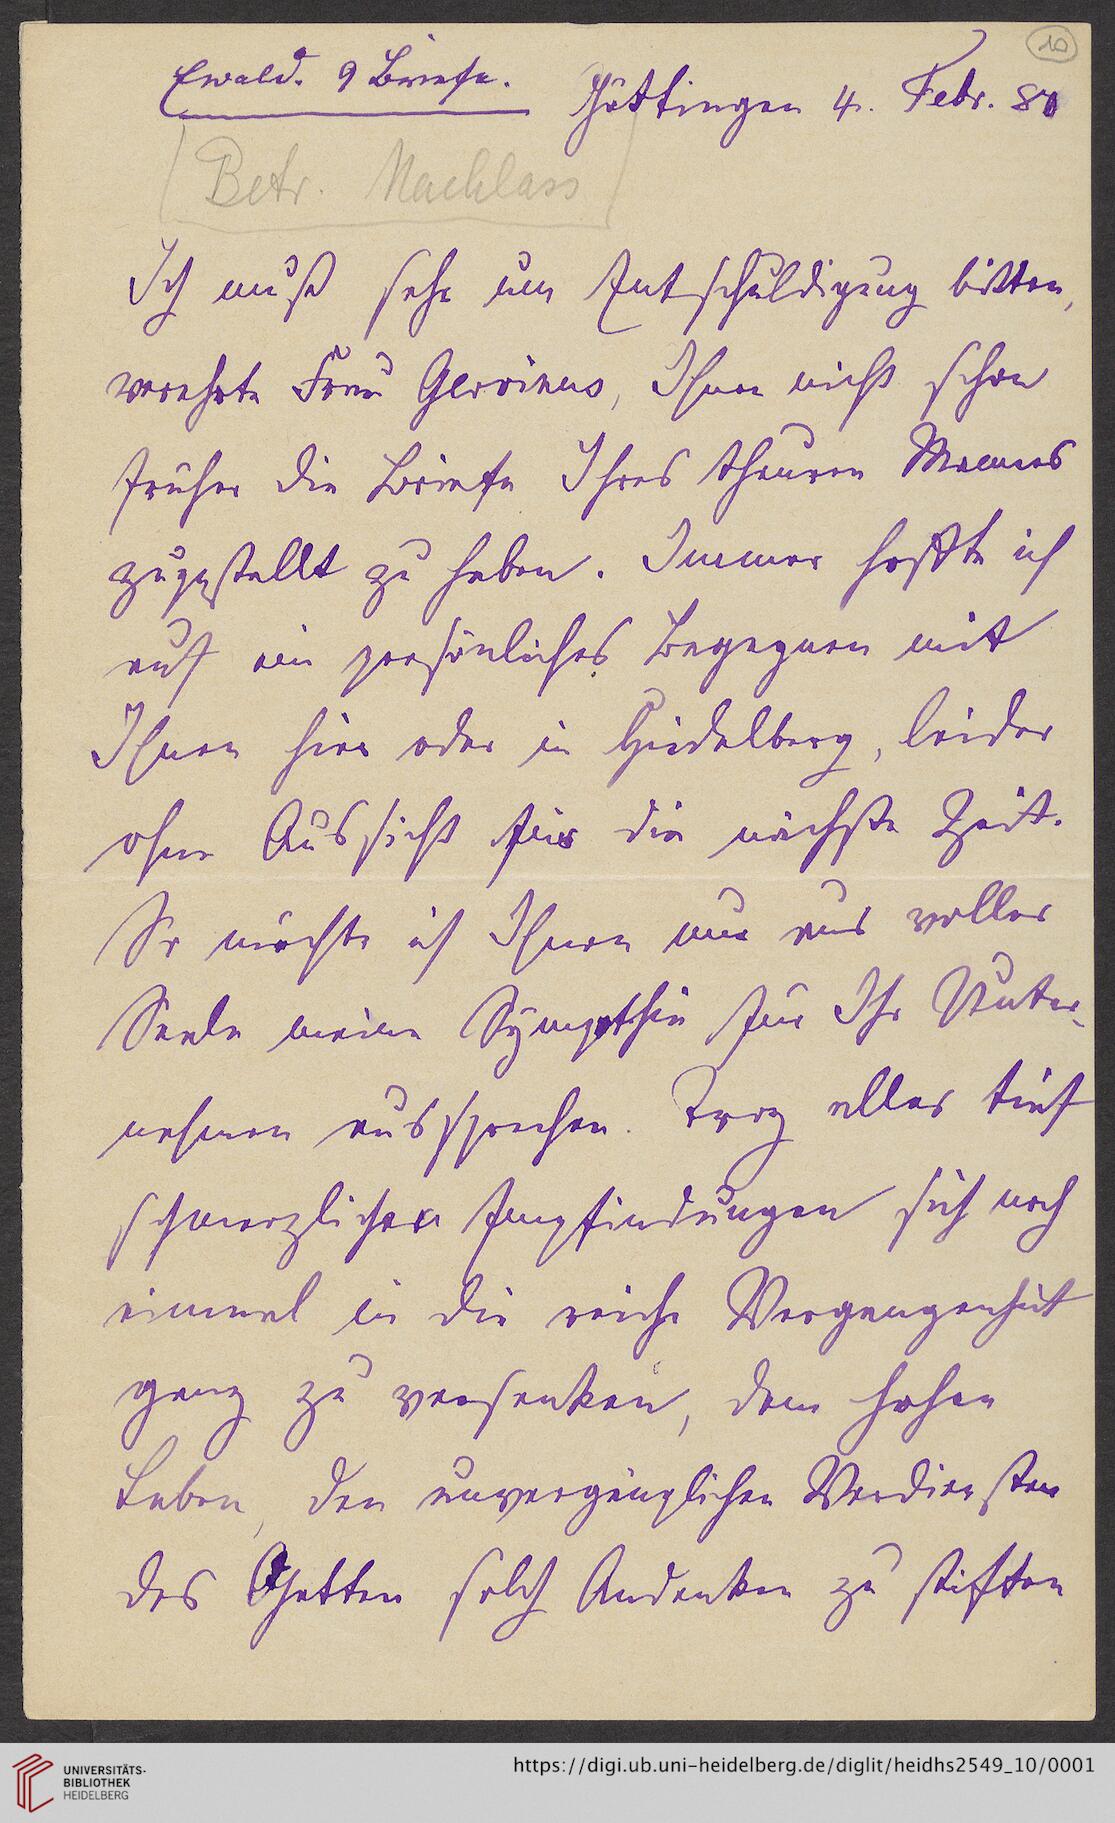 10
Ewald. 9 Briefe.
Göttingen 4. Febr. 80
Betr. Nachlass
Ich muß sehr um Entschuldigung bitten,
verehrte Frau Gervinus, Ihnen nicht schon
früher die Briefe Ihres theuren Mannes
zugestellt zu haben. Immer hoffte ich
auf ein persönliches Begegnen mit
Ihnen hier oder in Heidelberg, leider
ohne Aussicht für die nächste Zeit.
So möchte ich Ihnen nur aus voller
Seele meine Sympathie für Ihr Unter-
nehmen aussprechen. Troz aller tief
schmerzlichen Empfindungen sich noch
einmal in die reiche Vergangenheit
ganz zu versenken, dem hohen
Leben, den unvergänglichen Verdiensten
des Gatten solch Andenken zu stiften
UNIVERSITÄTS-
BIBLIOTHEK
HEIDELBERG
https://digi.ub.uni-heidelberg.de/diglit/heidhs2549_10/0001